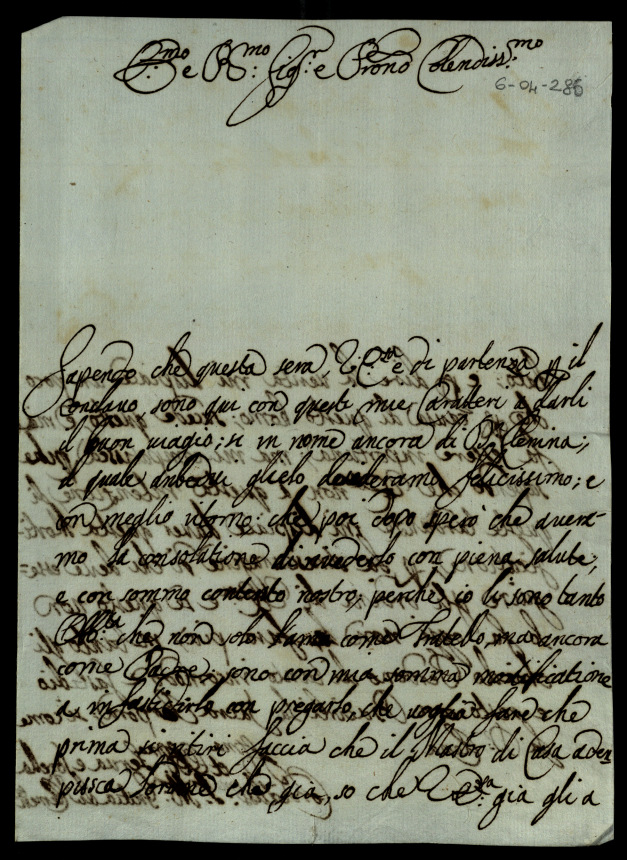 E.mo e R.mo Sig.r e Prone Colendiss.mo
6-04-285
Sapendo che questa sera V. E.za è di partenza p il
Conclaue, sono qui con questi miei Caratteri à darli
il buon uiagio; si in nome ancora di D. Clemina;
il quale anbedui glielo desideramo felicissimo; e
con meglio ritorno: che poi dopo spero che auera-
mo la consolatione di riuederlo con piena salute,
e con sommo contento nostro, perche io li sono tanto
che non solo l'amo come Fratello, ma ancora
come Padre; sono con mia somma mortificatione
a infastidirlo con pregarlo che uoglia fare che
prima si ritiri faccia che il Mastro di Casa aden-
pisca l'ordine che già, so che V. E.za già gli a